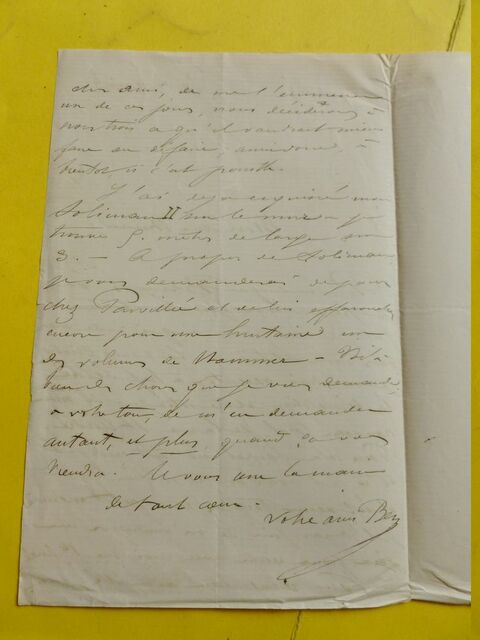 cher ami, de me l'emmener
un de ces jours, nous déciderons à
nous trois ce qu'il vaudrait mieux
faire ou défaire, ainsi donc, à
bientôt si c'est possible.
J'ai déjà esquissé mon
Soliman II sur le mur je
trouve 5. mètres de large sur
3. — A propos de Soliman
je vous demanderai de passer
chez Parvillée et de lui
encore pour une huitaine un
des volumes de Hammer —
bien des choses que je vous demande
à votre tour, de m'en demander
autant, et plus quand ça vous
viendra. Je vous serre la main
de tout cœur.
votre ami Ben